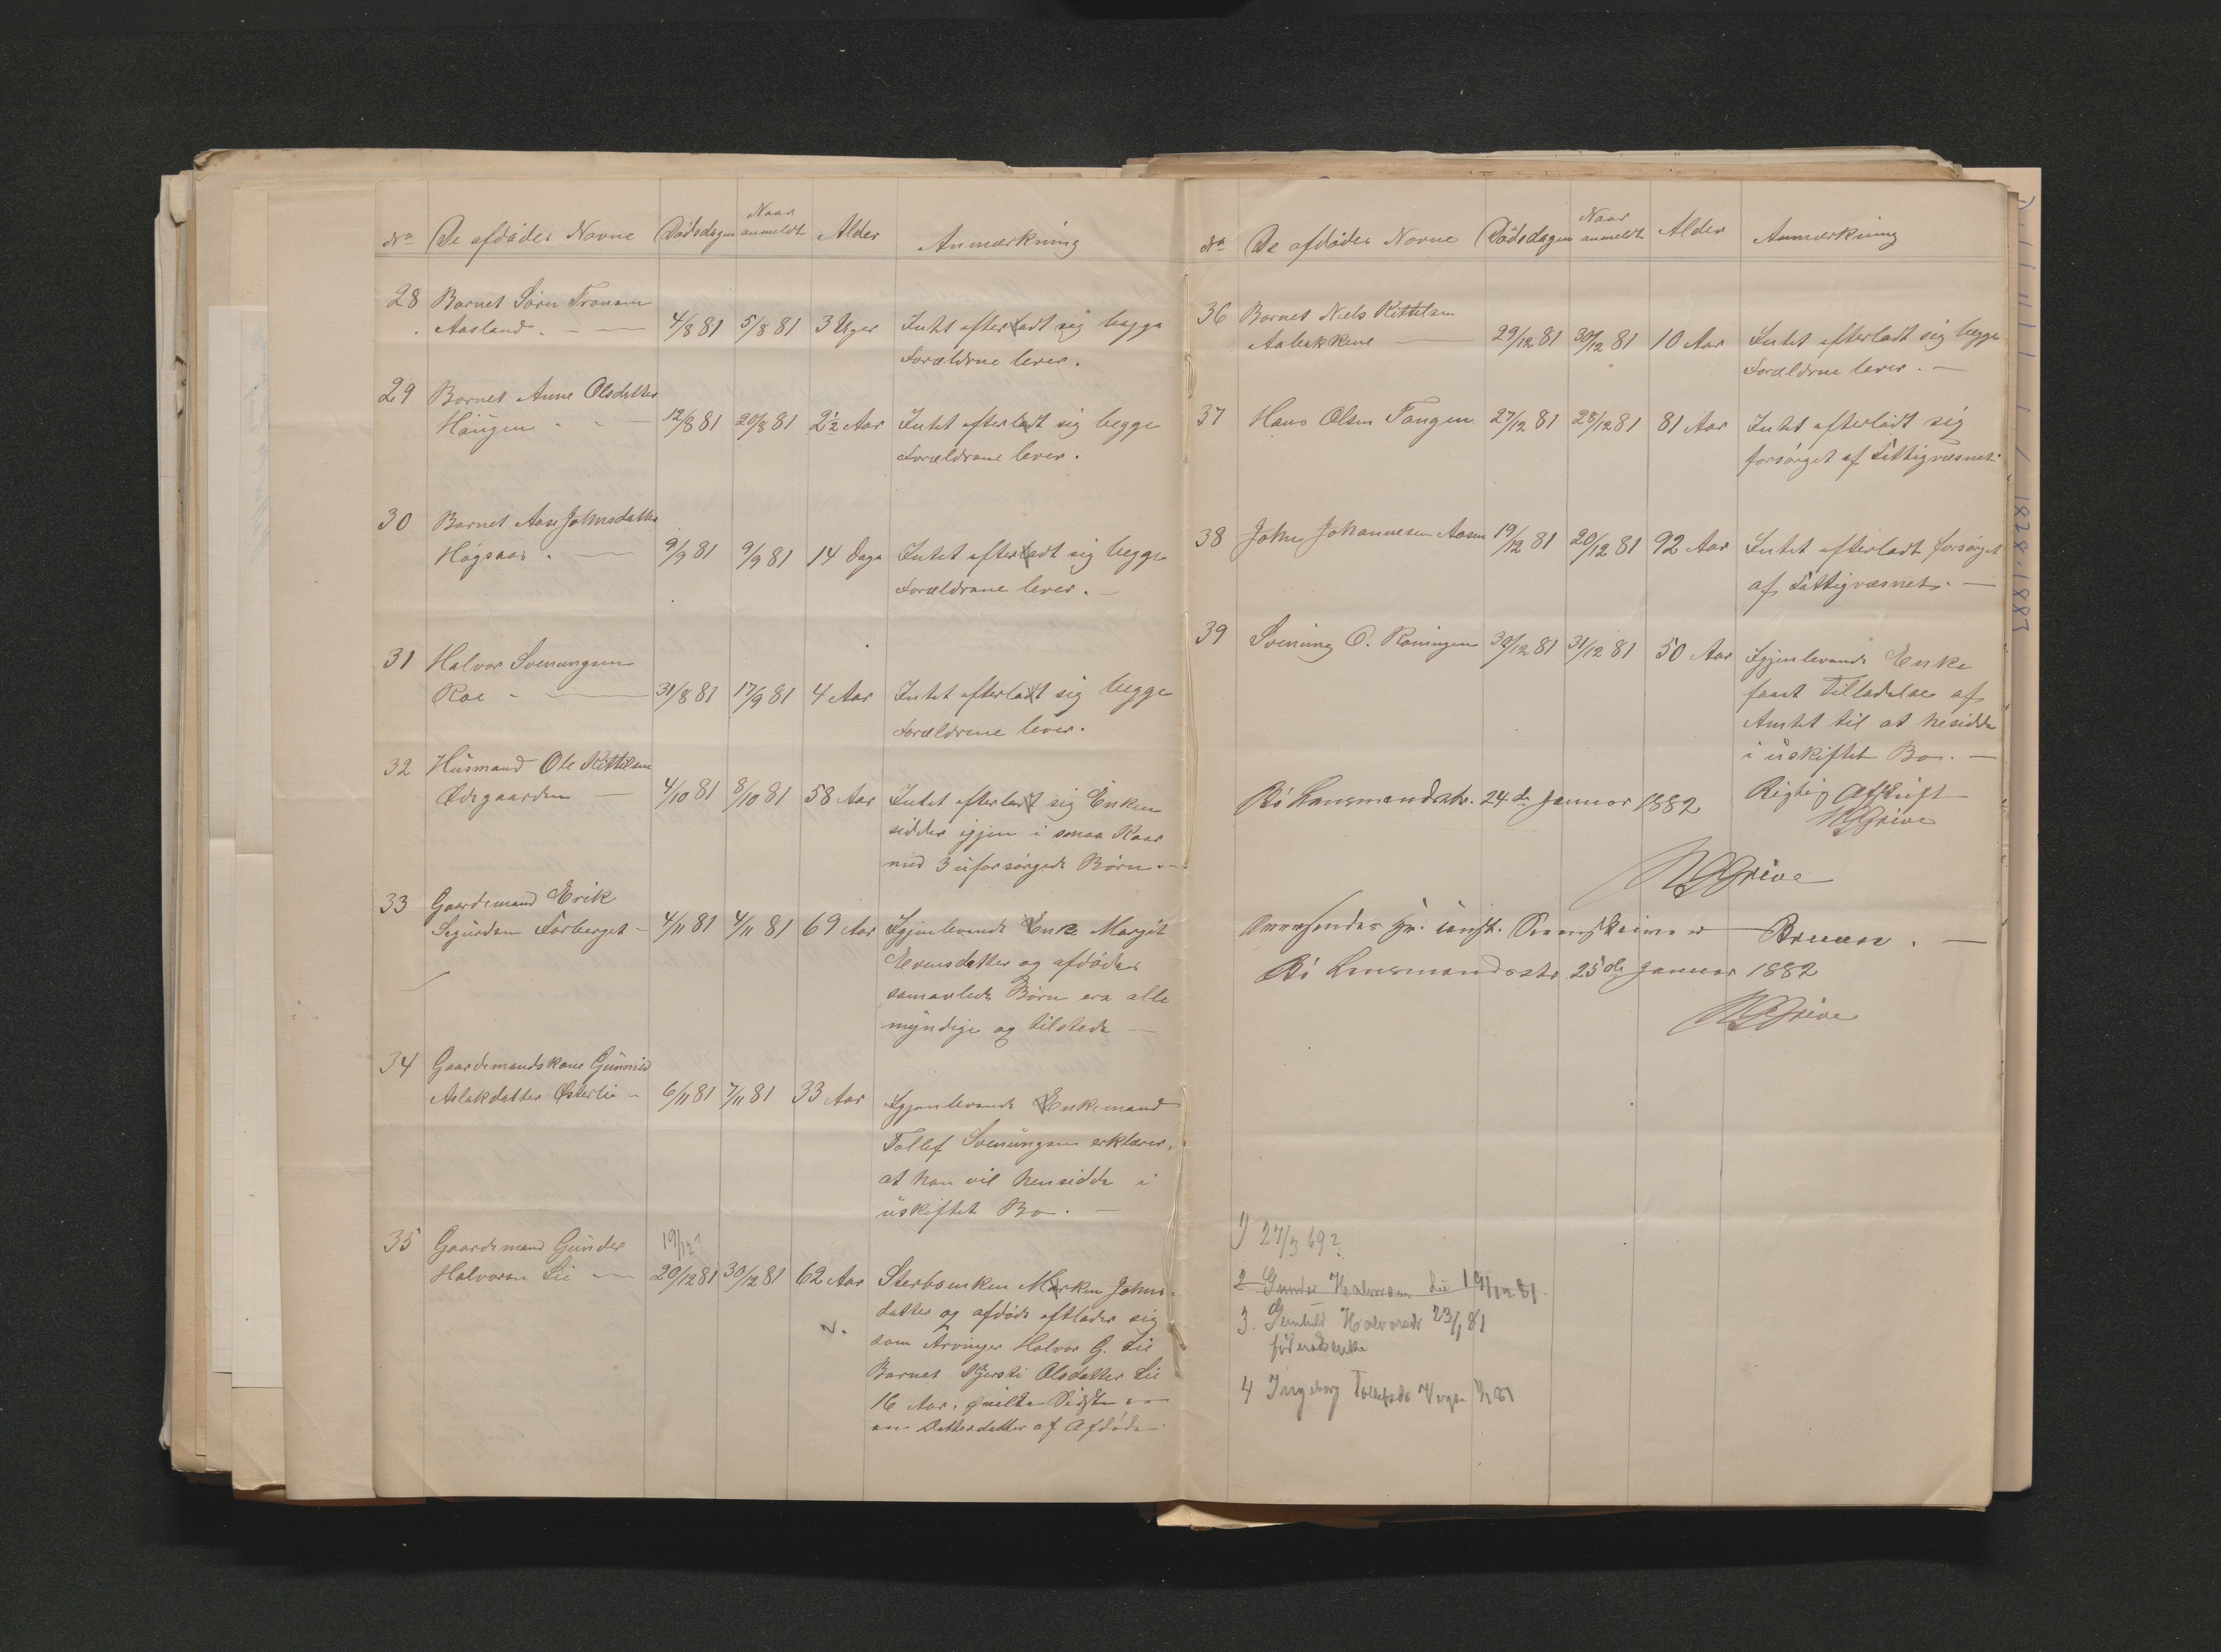 No De afdödes Navne Dödsdagen Naar anmeldt Alder Anmærkning
28 Barnet Sörn Transen
Aasland. 4/8 81 5/8 81 3 Uger Intet efterladt sig begge
Forældrne lever.
29 Barnet Anne Olsdatter
Haugen 12/8 81 20/8 81 2½ Aar Intet efterladt sig begge
Forældrene lever.
30 Barnet Aase Johnsdatter
Högsaas. 9/9 81 9/9 81 14 Dage Intet efterladt sig begge
Forældrene lever.
31 Halvor Svenungsen
Roe 31/8 81 17/9 81 4 Aar Intet efterladt sig begge
Forældrene lever.
32 Husmand Ole Kittilsen
Ødegaarden 4/10 81 8/10 81 58 Aar Intet efterladt sig Enken
sidder igjen i smaa Kaar
med 3 uforsörgede Börn.
33 Gaardmand Erik
Sigurdsen Forberget 4/11 81 4/11 81 69 Aar Igjenlevende Enke Margit
Evensdatter og afdödes
samavlede Börn era alle
myndige og tilstede
34 Gaardmandskone Gunnild
Aslakdatter Østerlie 6/11 81 7/11 81 33 Aar Igjenlevende Enkemand
Tollef Svenungsen erklærer,
at han vil hensidde i
uskiftet Bo.
19/12?
35 Gaardmand Gunder
Halvorsen Lie 20/12 81 30/12 81 62 Aar Sterboenken Marken Johns-
datter og afdöde eftlader sig
som Arvinger Halvor G. Lie
Barnet Kjersti Olsdatter Lie
16 Aar, hvilke Sidste er
en Datterdatter af Afdöde
No De afdödes Navne Dödsdagen Naar anmeldt Alder Anmærkning
36 Barnet Niels Kittilsen
Aabakkene 29/12 81 30/12 81 10 Aar Intet efterladt sig begge
Forældrne lever.
37 Hans Olsen Tangen 27/12 81 28/12 81 81 Aar Intet efterladt sig
forsörget af Fattigvæsnet.
38 John Johannesen Aasen 19/12 81 20/12 81 92 Aar Intet efterladt forsörget
af Fattigvæsnet.
39 Svening O. Roningen 30/12 81 31/12 81 50 Aar Igjenlevende Enke
faaet Tilladelse af
Amtet til at hesidde
i uskiftet Bo.
Bö Lensmandsstr. 24de Januar 1882 Rigtig Afskrift
Grive
Grive
Hr. const. Sorenskriver Bruun.
Bö Lensmandsstr 25de Januar 1882
Grive
1) 27/3 69?
2 Gunder Halvorsen Lie 19/12 81.
3. Gunhild Halvorsdr 23/1 81
föderaadsenke
4 Ingeborg Tollefsdr 81
1828-1887